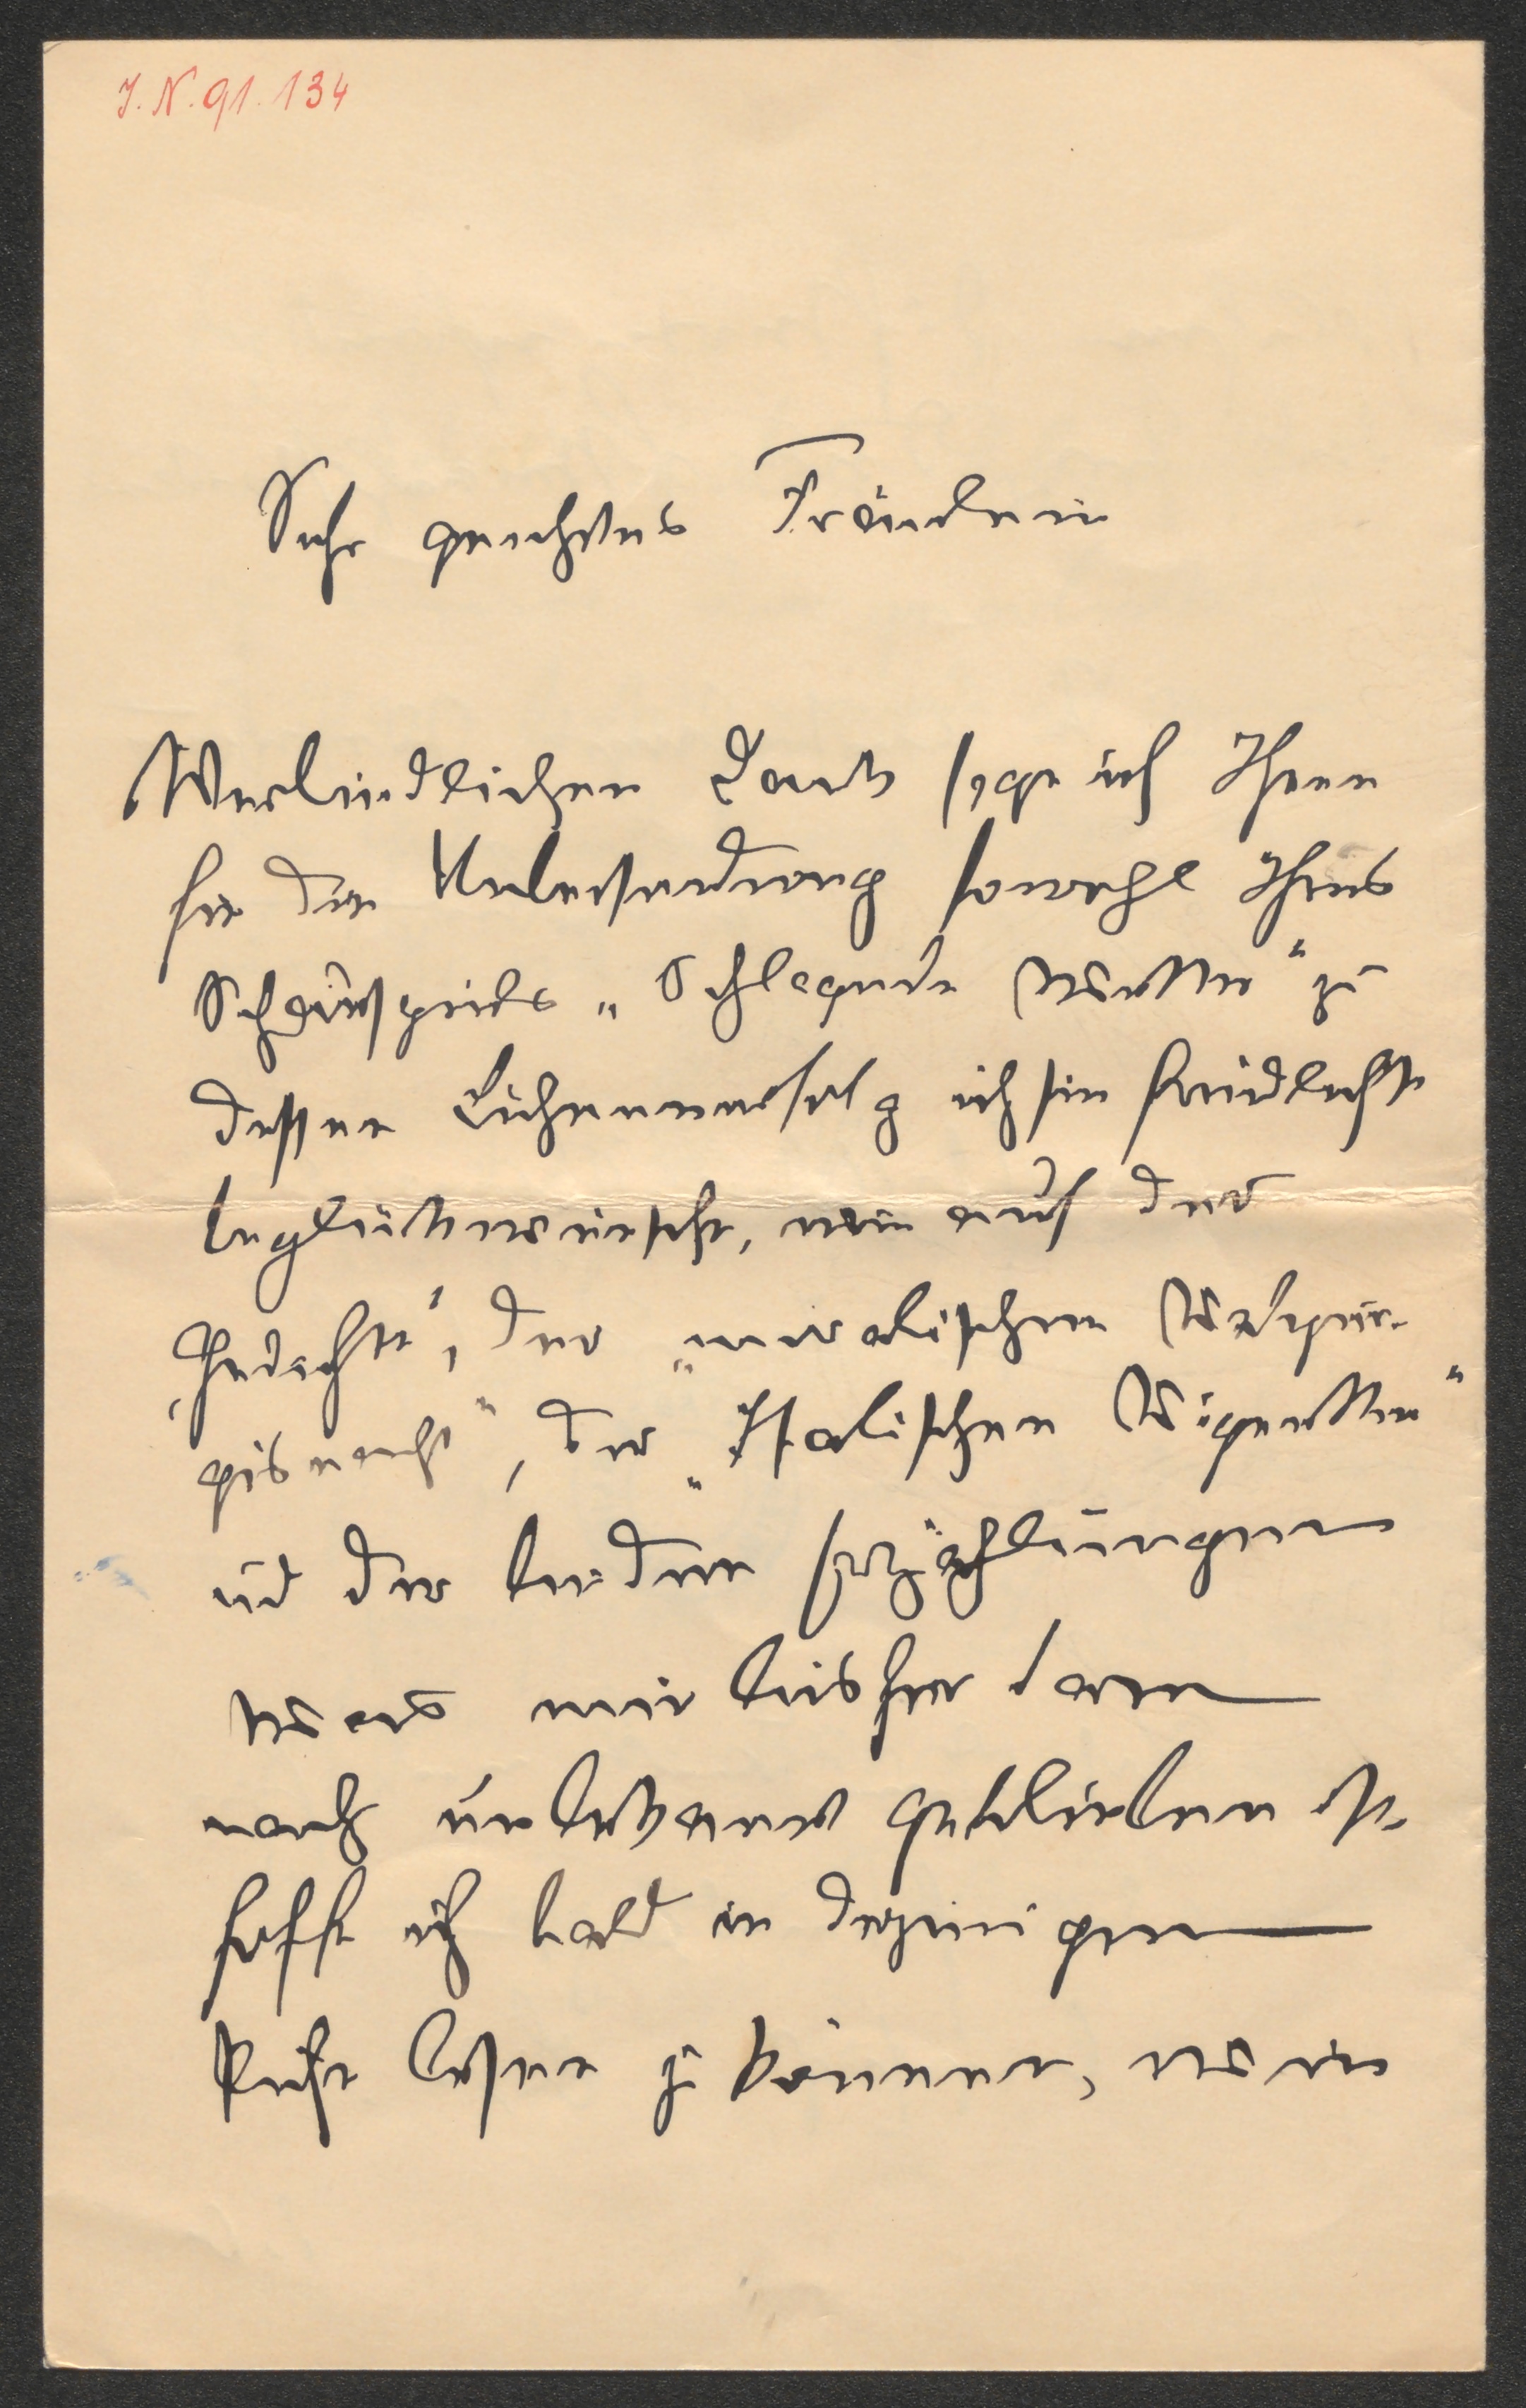 J.N. 91.134
Sehr geehrtes Fräulein
Verbindlichen Dank sage ich Ihnen
für die Uebersendung sowohl Ihres
Schauspiels „Schlagende Wetter“ zu
dessen Bühnenerfolg ich Sie freudlichst
beglückwünsche, wie auch der
„Gedichte“, der „moralischen Walpur-
gisnacht“, der „Italischen Vignetten“
und der beiden Erzählungen
was mir bisher davon
noch unbekannt geblieben ist
hoffe ich bald in derjenigen
Ruhe lesen zu können, wie